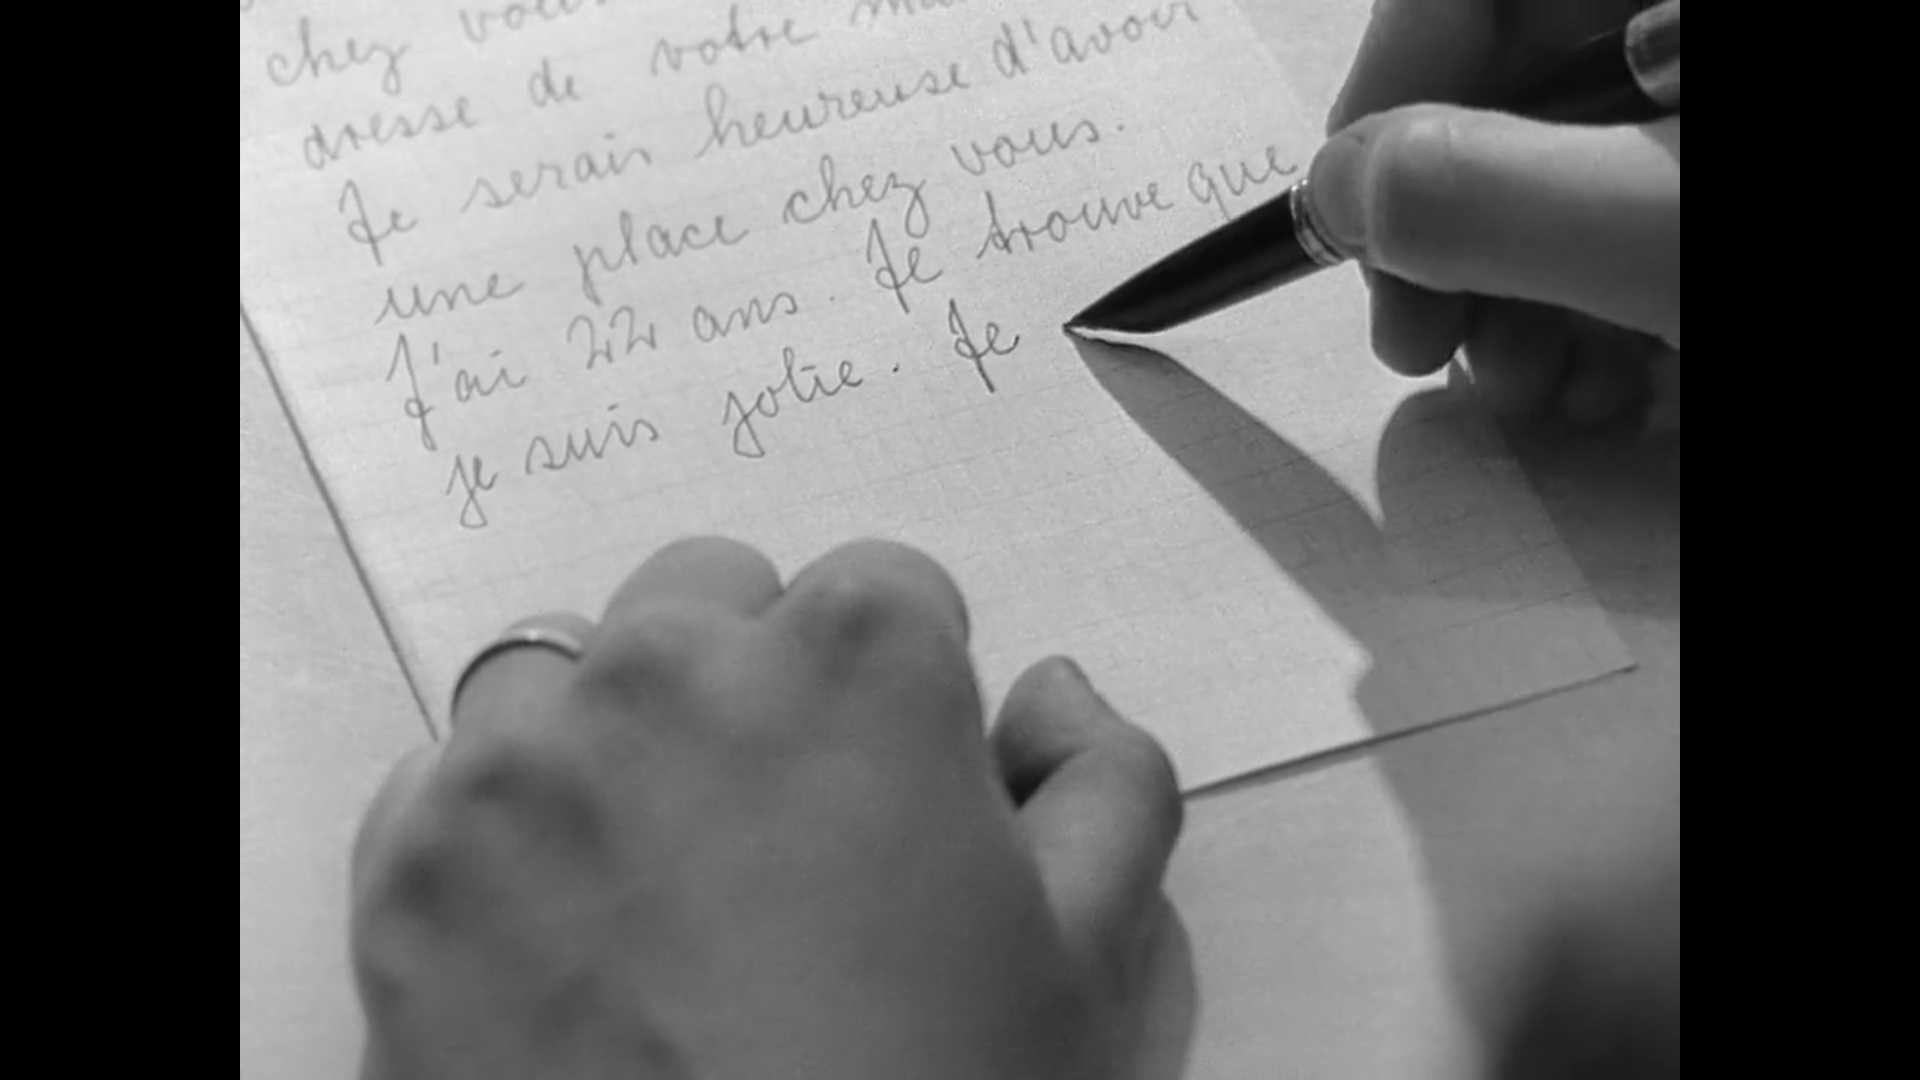 chez vous
dresse de votre
Je serais heureuse d'avoir
une place chez vous.
J'ai 22 ans. Je trouve que
je suis jolie. Je